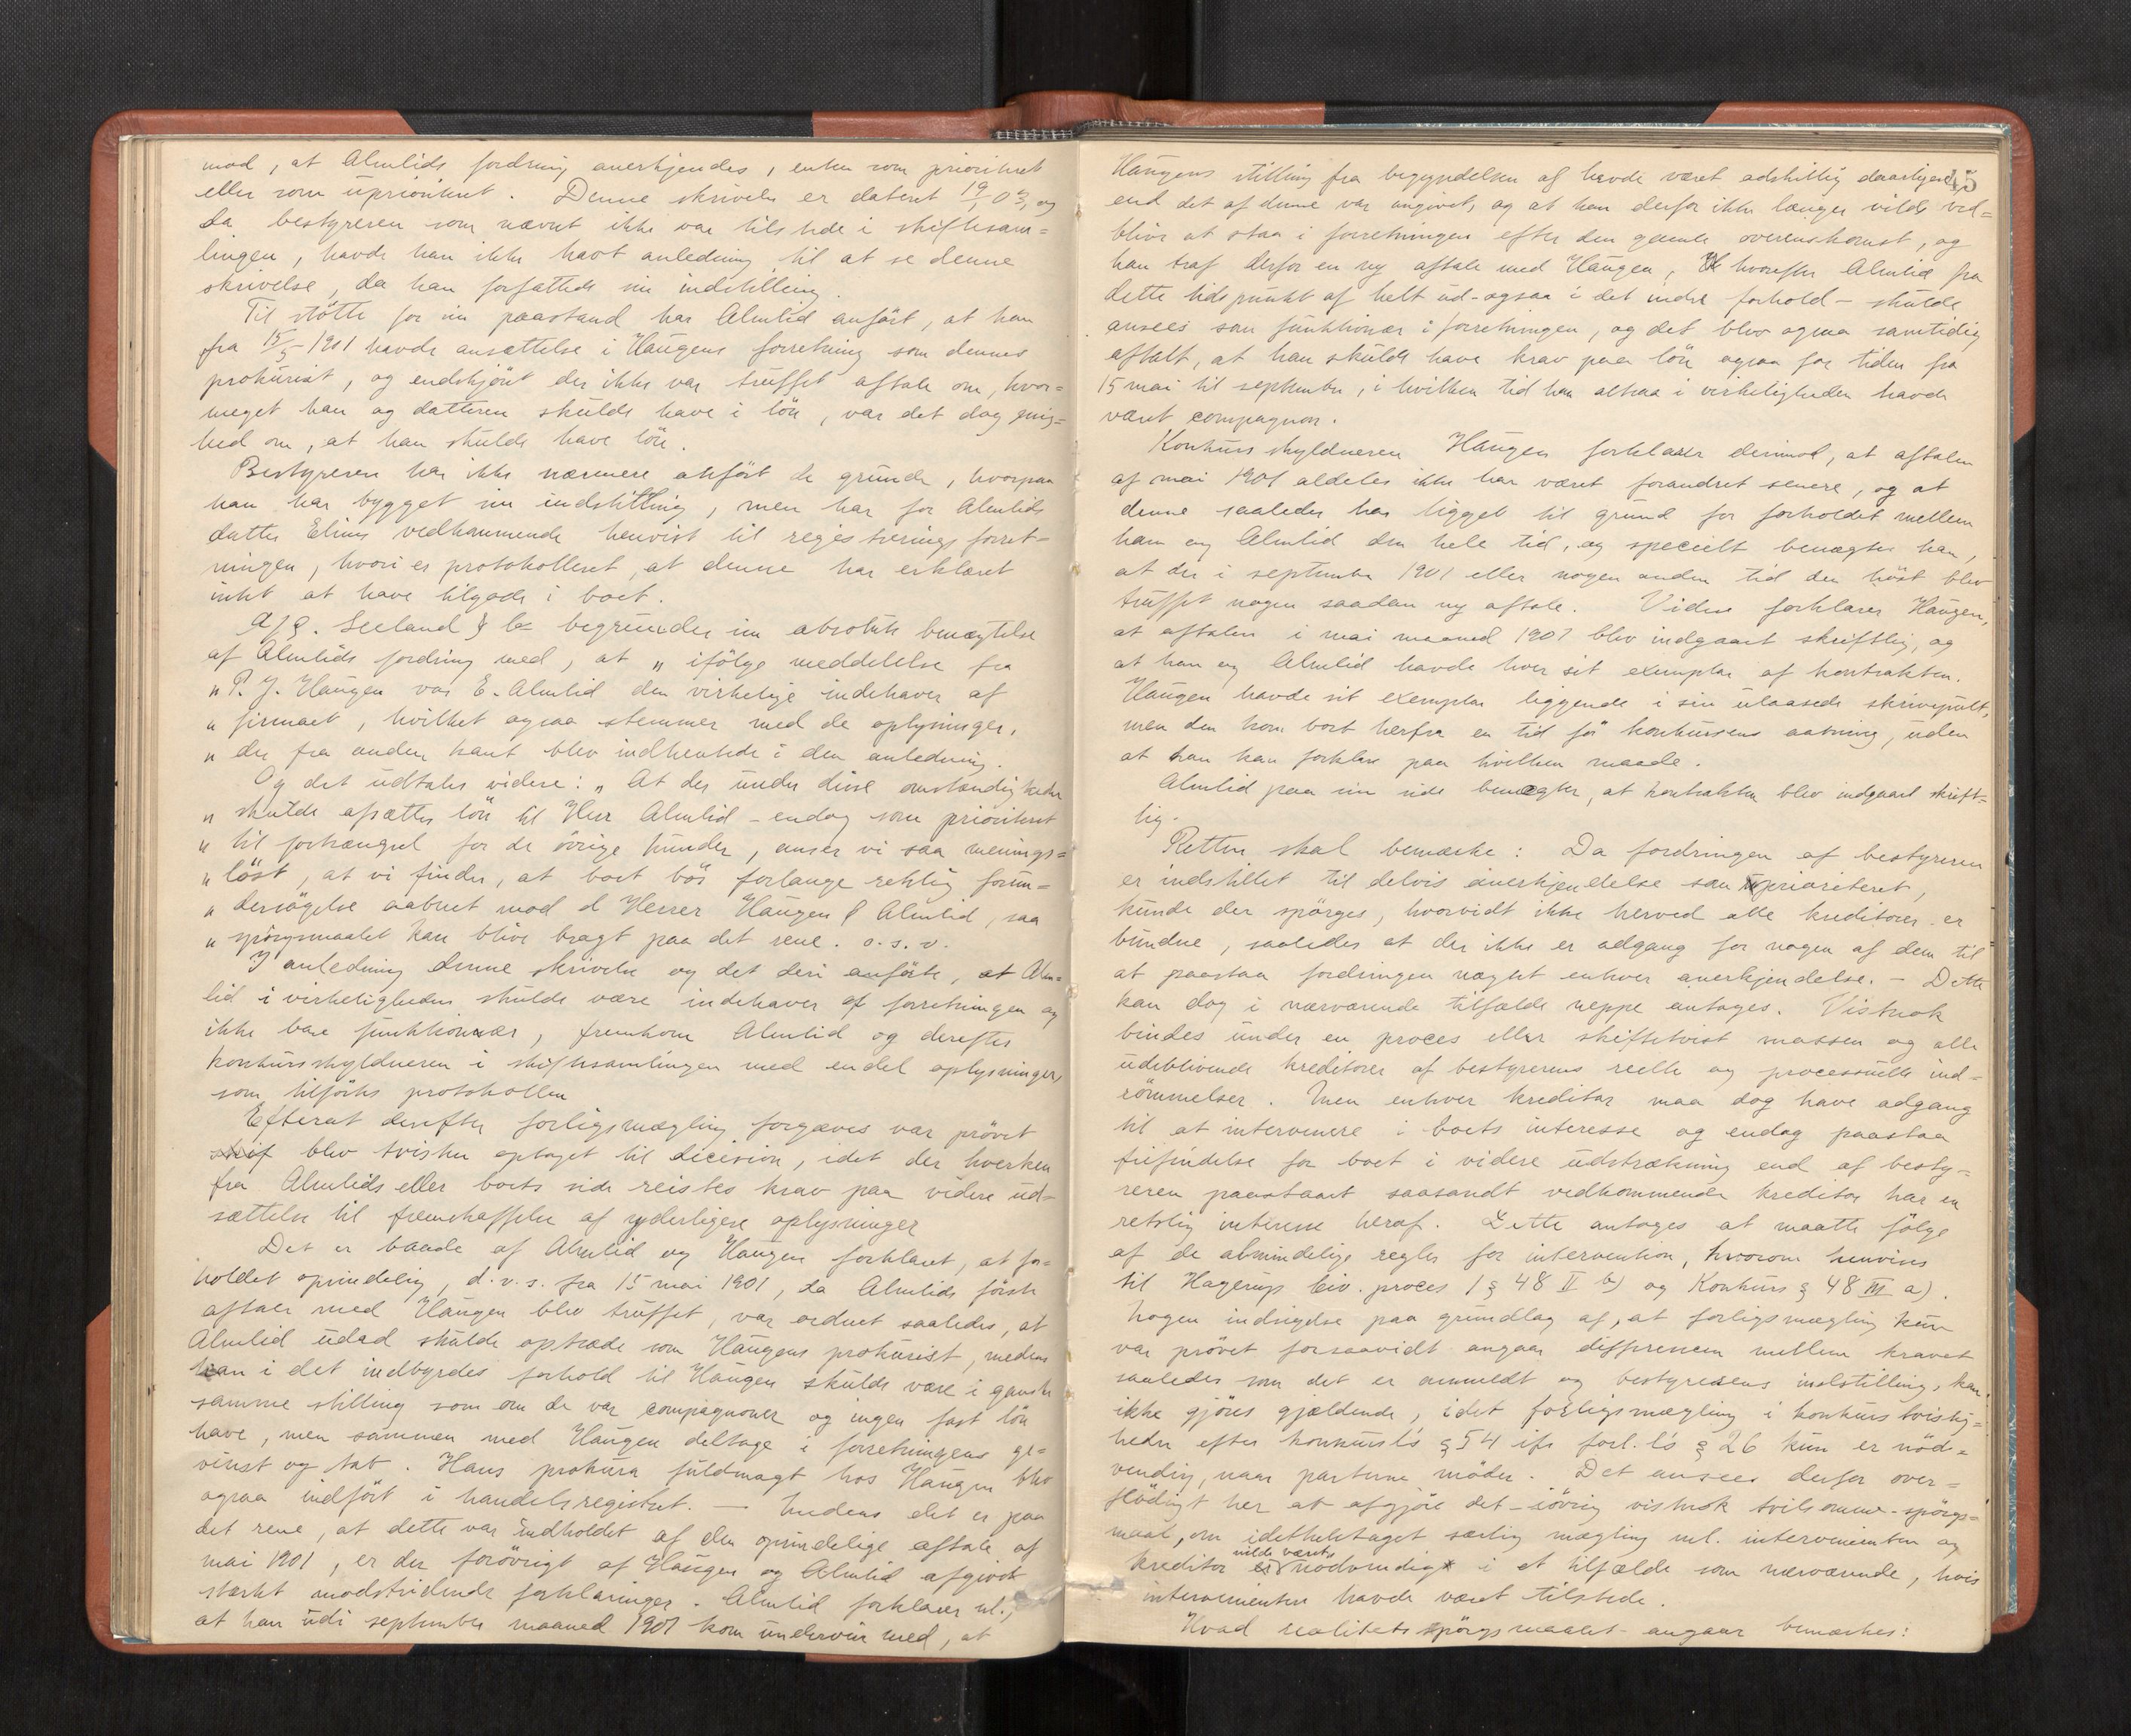 mod, at Almlids fordring anerkjendes, enten som prioriteret
eller som uprioriteret. Denne skrivelse er dateret 19/1 03, og
da bestyreren som nævnt ikke var tilstede i skiftesam=
lingen, havde han ikke havt anledning til at se denne
skrivelse, da han forfattede sin indstilling.
Til støtte for sin paastand har Almlid anført, at han
fra 15/5 1901 havde ansættelse i Haugens forretning som dennes
prokurist, og endskjønt der ikke var truffet aftale om, hvor=
meget han og datteren skulde have i løn, var det dog enig=
hed om, at han skulde have løn.
Bestyreren har ikke nærmere anført de grunde, hvorpaa
han har bygget sin indstilling, men har for Almlids
datter Elines vedkommende henvist til registreringsforret=
ningen, hvori er protokolleret, at denne har erklæret
intet at have tilgode i boet.
A/S. Seeland & Co begrunder sin absolute benægtelse
af Almlids fordring med, at „ifølge meddelelse fra
„P. J. Haugen var E. Almlid den virkelige indehaver af
„firmaet, hvilket ogsaa stemmer med de oplysninger,
„der fra anden kant blev indhentede i den anledning.
Og det udtales videre: „At der under disse omstændigheder
„skulde afsættes løn til Herr Almlid – endog som prioriteret
„til fortrængsel for de øvrige kunder, anser vi saa menings=
„løst, at vi finder, at boet bør forlange retslig forun=
„dersøgelse aabnet mod d Herrer Haugen & Almlid, saa
„spørgsmaalet kan blive bragt paa det rene. o.s.v.
I anledning denne skrivelse og det deri anførte, at Alm=
lid i virkeligheden skulde være indehaver af forretningen og
ikke bare funktionær, fremkom Almlid og derefter
konkursskyldneren i skiftesamlingen med endel oplysninger,
som tilførtes protokollen
Efterat derefter forligsmægling forgjæves var prøvet
blev tvisten optaget til decision, idet der hverken
fra Almlids eller boets side reistes krav paa videre ud=
sættelse til fremskaffelse af yderligere oplysninger
Det er baade af Almlid og Haugen forklaret, at for=
holdet oprindelig, d.v.s. fra 15 mai 1901, da Almlids første
aftale med Haugen blev truffet, var ordnet saaledes, at
Almlid udad skulde optræde som Haugens prokurist, medens
han i det indbyrdes forhold til Haugen skulde være i ganske
samme stilling som om de var compagnoner og ingen fast løn
have, men sammen med Haugen deltage i forretningens ge=
vinst og tab. Hans prokura fuldmagt hos Haugen blev
ogsaa indført i handelsregistret. — Medens det er paa
det rene, at dette var indholdet af den oprindelige aftale af
mai 1901, er der forøvrigt af Haugen og Almlid afgivet
stærkt modstridende forklaringer. Almlid forklarer nl.,
at han udi september maaned 1901 kom underveir med, at
15
Haugens stilling fra begyndelsen af havde været adskillig daarligere,
end det af denne var angivet, og at han derfor ikke længer vilde ved=
blive at staa i forretningen efter den gamle overenskomst, og
han traf derfor en ny aftale med Haugen, hvorefter Almlid fra
dette tidspunkt af helt ud – ogsaa i det indre forhold – skulde
ansees som funktionær i forretningen, og det blev ogsaa samtidig
aftalt, at han skulde have krav paa løn ogsaa for tiden fra
15 mai til september, i hvilken tid han altsaa i virkeligheden havde
været compagnon.
Konkursskyldneren Haugen forklarer derimod, at aftalen
af mai 1901 aldeles ikke har været forandret senere, og at
denne saaledes har ligget til grund for forholdet mellem
ham og Almlid den hele tid, og specielt benægter han,
at der i september 1901 eller nogen anden tid den høst blev
truffet nogen saadan ny aftale. Videre forklarer Haugen,
at aftalen i mai maaned 1901 blev indgaaet skriftlig, og
at han og Almlid havde hver sit exemplar af kontrakten.
Haugen havde sit exemplar liggende i sin ulaasede skrivepult,
men den kom bort herfra en tid før konkursens aabning, uden
at han kan forklare paa hvilken maade.
Almlid paa sin side benægter, at kontrakten blev indgaaet skrift=
lig.
Retten skal bemærke: Da fordringen af bestyreren
er indstillet til delvis anerkjendelse som uprioriteret,
kunde der spørges, hvorvidt ikke herved alle kreditorer er
bundne, saaledes at der ikke er adgang for nogen af dem til
at paastaa fordringen nægtet enhver anerkjendelse. – Dette
kan dog i nærværende tilfælde neppe antages. Vistnok
bindes under en proces eller skiftetvist massen og alle
udeblivende kreditorer af bestyrerens reelle og processuelle ind=
rømmelser. Men enhver kreditor maa dog have adgang
til at intervenere i boets interesse og endog paastaa
frifindelse for boet i videre udstrækning end af besty=
reren paastaaet saasandt vedkommende kreditor har en
retslig interesse heraf. Dette antages at maatte følge
af de almindelige regler for intervention, hvorom henvises
til Hagerups Civ. proces I § 48 II b) og Konkurs § 48 III a).
Nogen indsigelse paa grundlag af, at forligsmægling kun
var prøvet forsaavidt angaar differencen mellem kravet
saaledes som det er anmeldt og bestyrerens indstilling, kan
ikke gjøres gjældende, idet forligsmægling i konkurstvistig=
heder efter konkursl's § 54 ifr forl.l's § 26 kun er nød=
vendig, naar parterne møder. Det ansees derfor over=
flødigt her at afgjøre det – iøvrig vistnok tvilsomme – spørgs=
maal, om idethele taget særlig mægling ml. intervenienten og
kreditor vilde været nødvendig i et tilfælde som nærværende, hvis
intervenienten havde været tilstede.
Hvad realitetsspørgsmaalet angaar bemærkes: